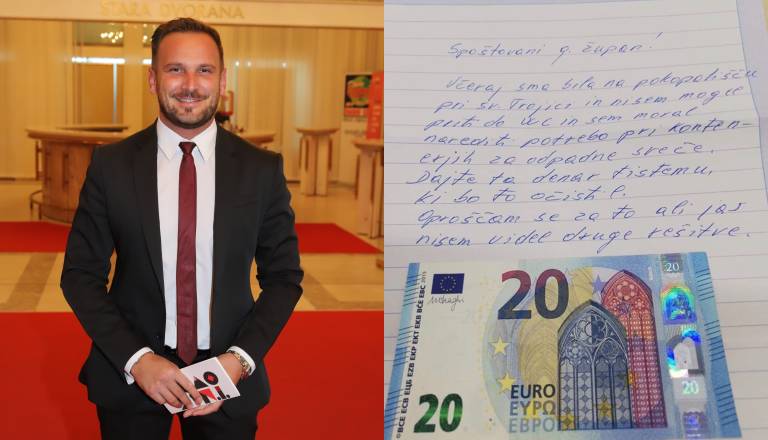 STARA DVORANA
Spoštovani g. župan!
Včeraj sma bila na pokopališču
pri Sv. Trojici in nisem mogel
priti do WC in sem moral
narediti potrebo pri konten-
erjih za odpadne sveče.
Dajte ta denar tistemu,
ki bo to očistil.
Oproščam se za to ali jaz
nisem videl druge rešitve.
20
20
20
20
EURO
ΕΥΡΩ
ЕВРО
©BCE ECB ЕЦБ EZB EKP EKT EKB BĊE EBC 2015